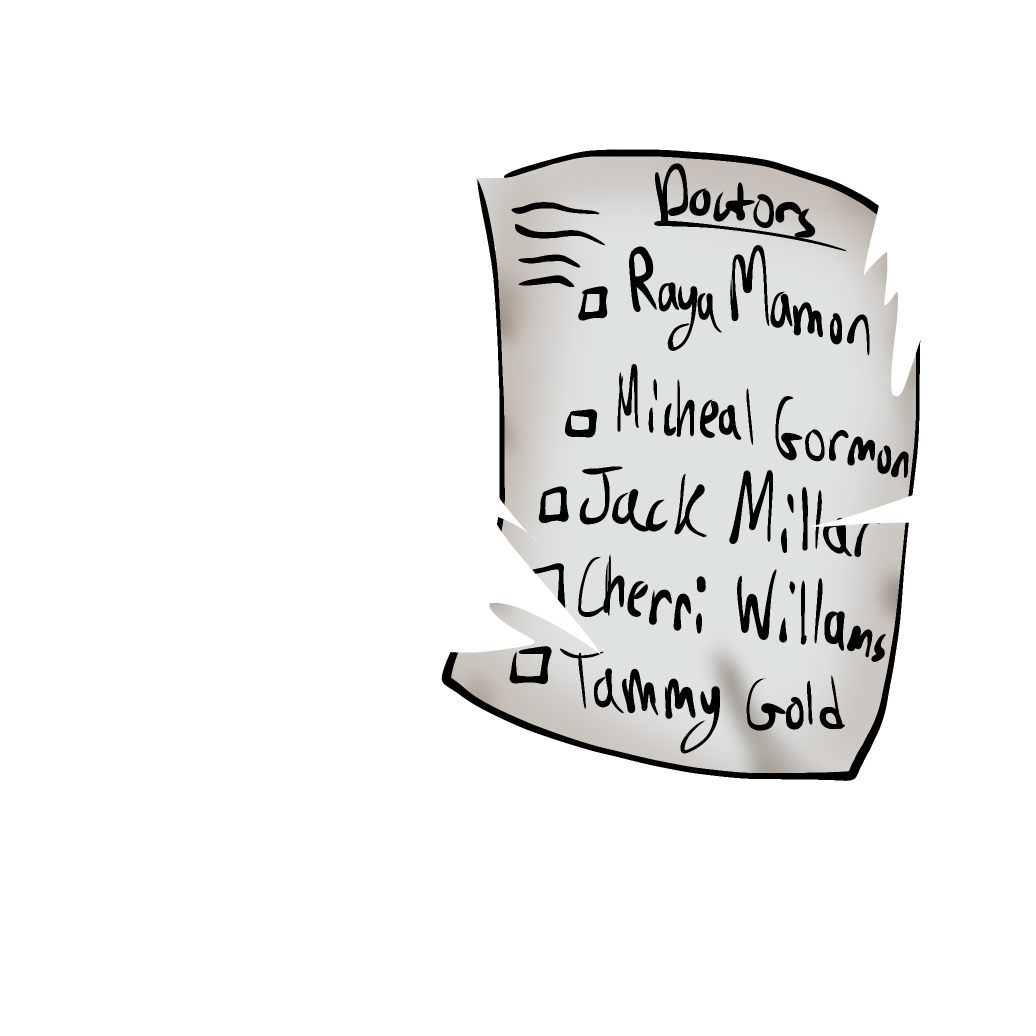 Doctors
Raya Mamon
Micheal Gormon
Jack Millar
Cherri Willams
Tammy Gold